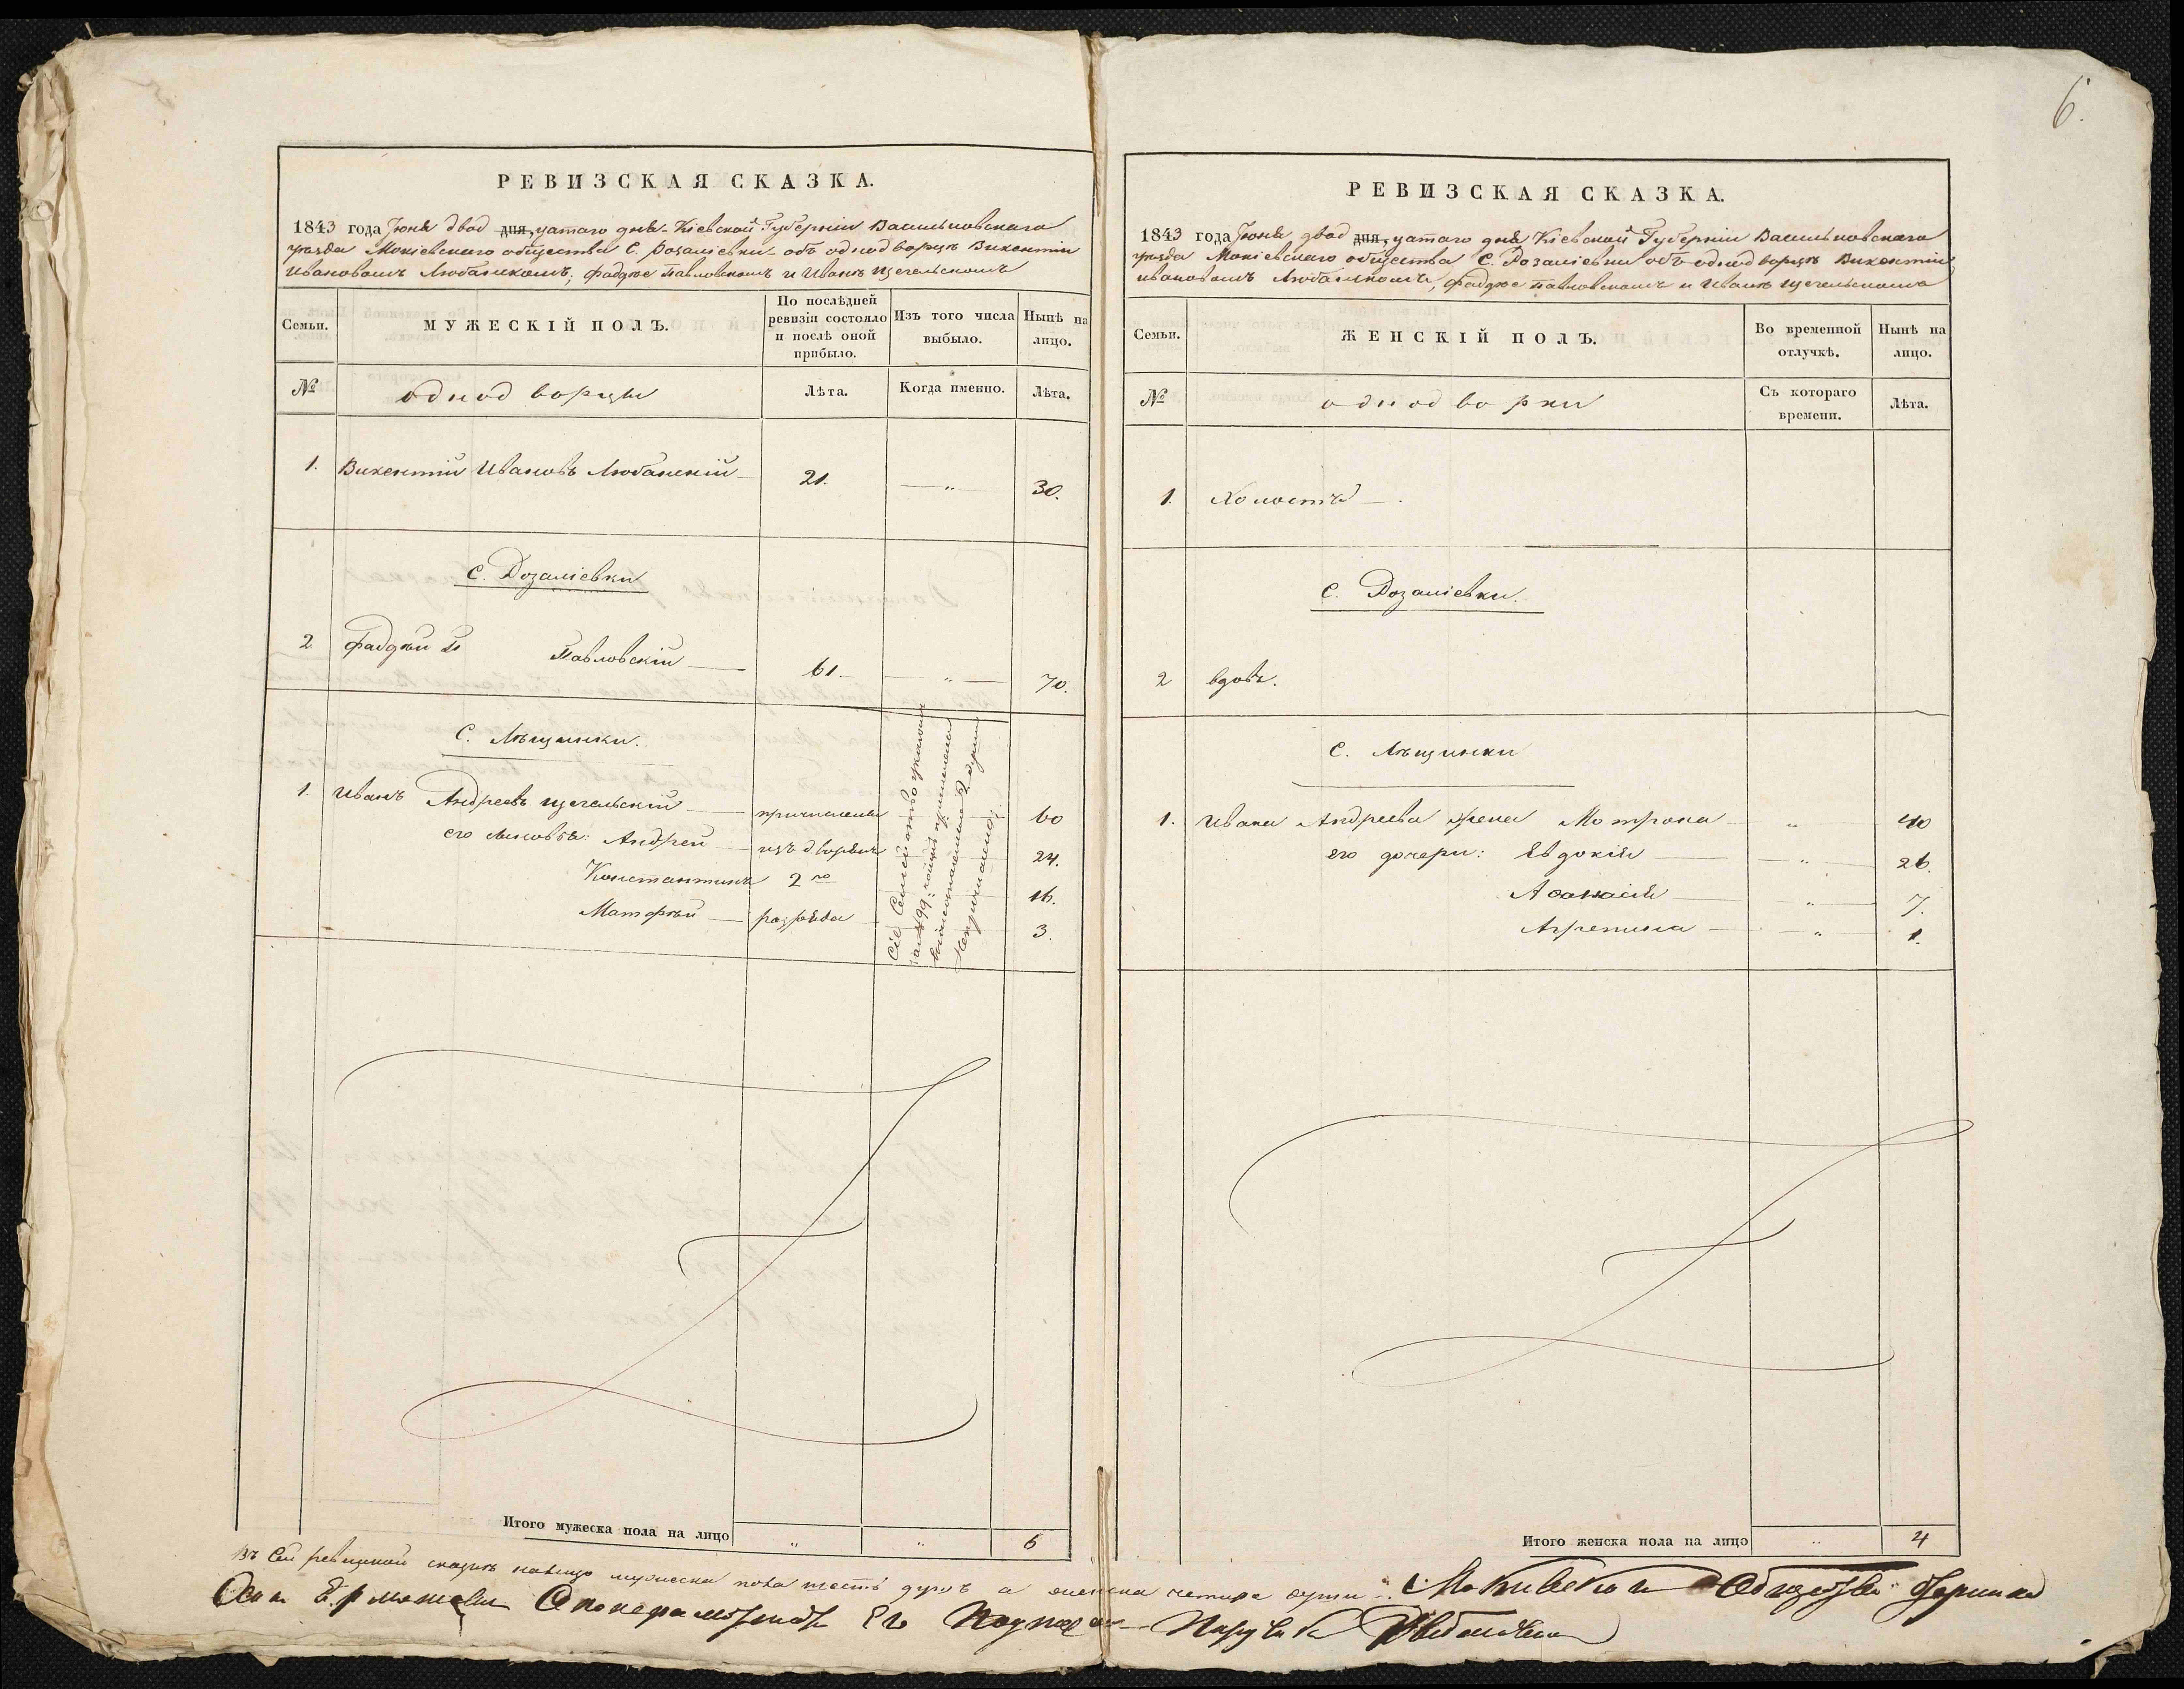 6.
РЕВИЗСКАЯ СКАЗКА.
1843 года Іюня двад дня, цатаго дня Кіевской Губерніи Васильковскаго
уезда Мокіевскаго общества С. Розаліевки объ однодворцѣ Викентіи
Ивановомъ Любанскомъ, Фадѣе Павловскомъ и Иванѣ Щегельскомъ
Семьи.
МУЖЕСКІЙ ПОЛЪ.
По послѣдней ревизіи состояло и послѣ оной прибыло.
Изъ того числа выбыло.
Нынѣ на лицо.
№
однодворцы
Лѣта.
Когда именно.
Лѣта.
1. Викентій Ивановъ Любанскій 21. — „ — 30.
С. Розаліевки
2 Фадѣй Павловскій 61 — „ — 70.
С. Лѣщинки.
1. Иванъ Андреевъ Щегельскій причислены 60
его сыновья: Андрей изъ дворянъ 24.
Константинъ 2го 16.
Матфѣй разряда 3.
Сіе Семейство
Итого мужеска пола на лицо „ „ 6
РЕВИЗСКАЯ СКАЗКА.
1843 года Іюня двад дня, цатаго дня Кіевской Губерніи Васильковскаго
уезда Мокіевскаго общества С. Розаліевки объ однодворцѣ Викентіи
Ивановомъ Любанскомъ, Фадѣе Павловскомъ и Иванѣ Щегельскомъ
Семьи.
ЖЕНСКІЙ ПОЛЪ.
Во временной отлучкѣ.
Нынѣ на лицо.
№
однодворки
Съ котораго времени.
Лѣта.
1. Холостъ
С. Розаліевки.
2 вдовъ.
С. Лѣщинки
1. Ивана Андреева жена Мотрона „ 40
его дочери: Евдокія „ 26.
Афанасія „ 7.
Агрепина „ 1.
Итого женска пола на лицо „ 4
Въ сей ревизской сказкѣ налицо мужеска пола шесть душъ а женска четыре души